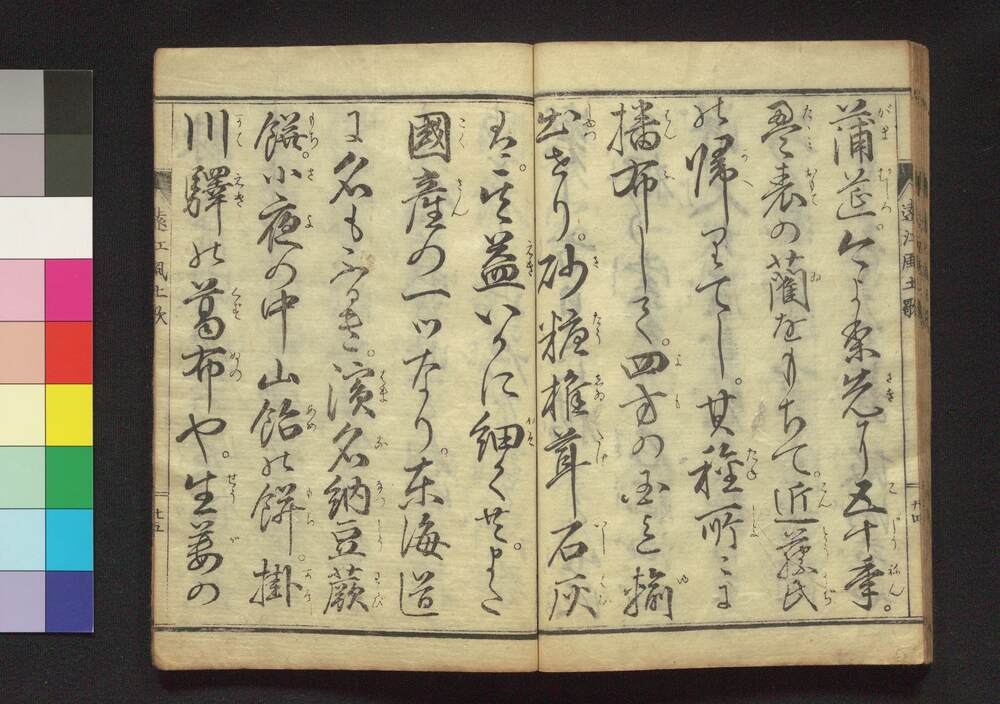 蒲莚。今より先つ五十年。
畳表の藺をもちて。近藤氏
の帰りてし。其種所々に
播布して。四方の国に輸
出せり。砂糖椎茸石灰
国産の一ツなり。東海道
に名も高き。濱名納豆蕨
餅。小夜の中山飴の餅。掛
川驛の葛布や。生姜の
遠江風土歌
廿四
遠江風土歌
廿五